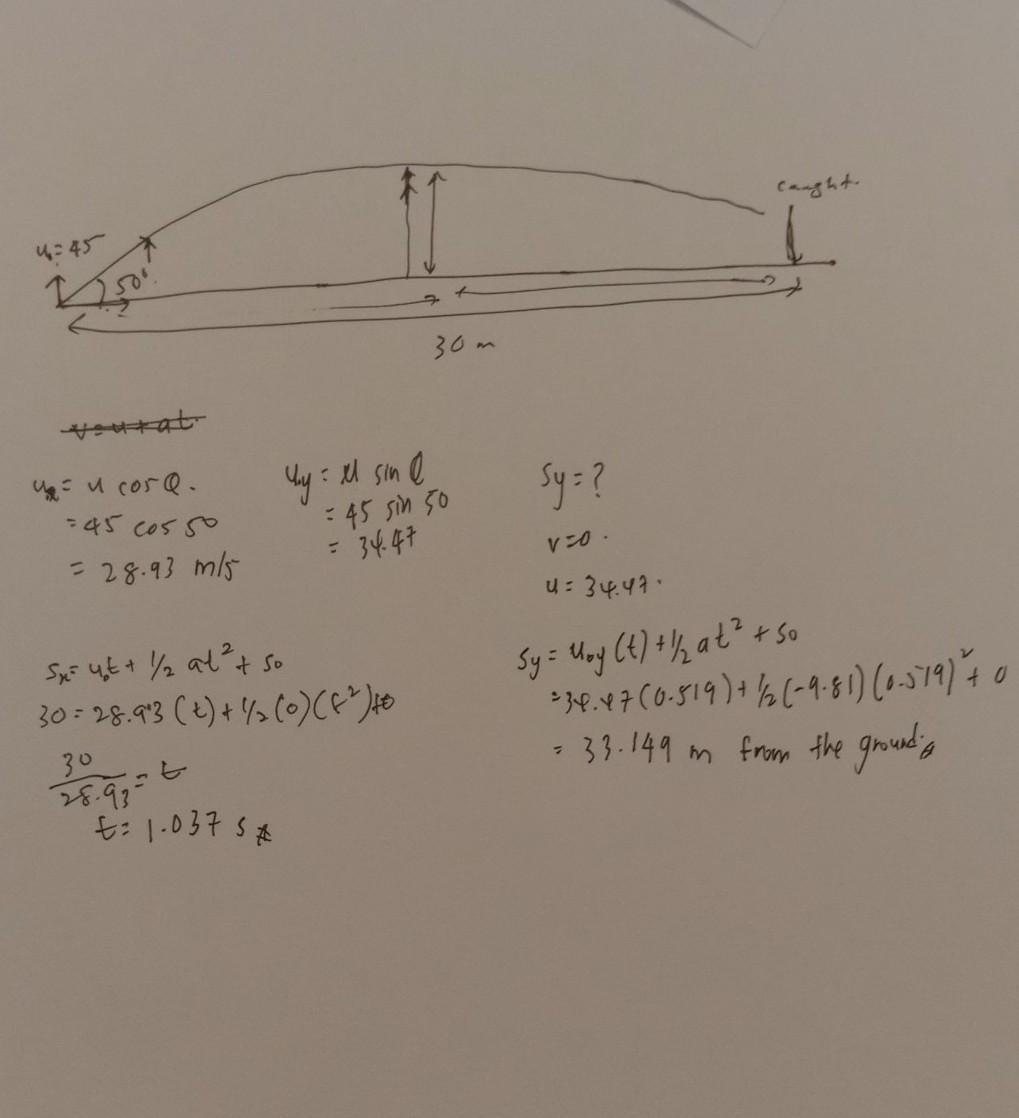 caught.
u₀= 45
50°.
30 m
v=u+at.
uₓ= u cos θ.
=45 cos 50
= 28.93 m/s
uy= u sin θ
= 45 sin 50
= 34.47
Sy=?
v=0.
u= 34.47.
Sx= u₀t + 1/2 at² + s₀
30=28.93 (t)+1/2(0)(t²)+0
30/28.93=t
t= 1.037 s
Sy= u₀y (t)+1/2 at² + s₀
=34.47(0.519)+1/2(-9.81)(0.519)²+0
= 33.149 m from the ground.